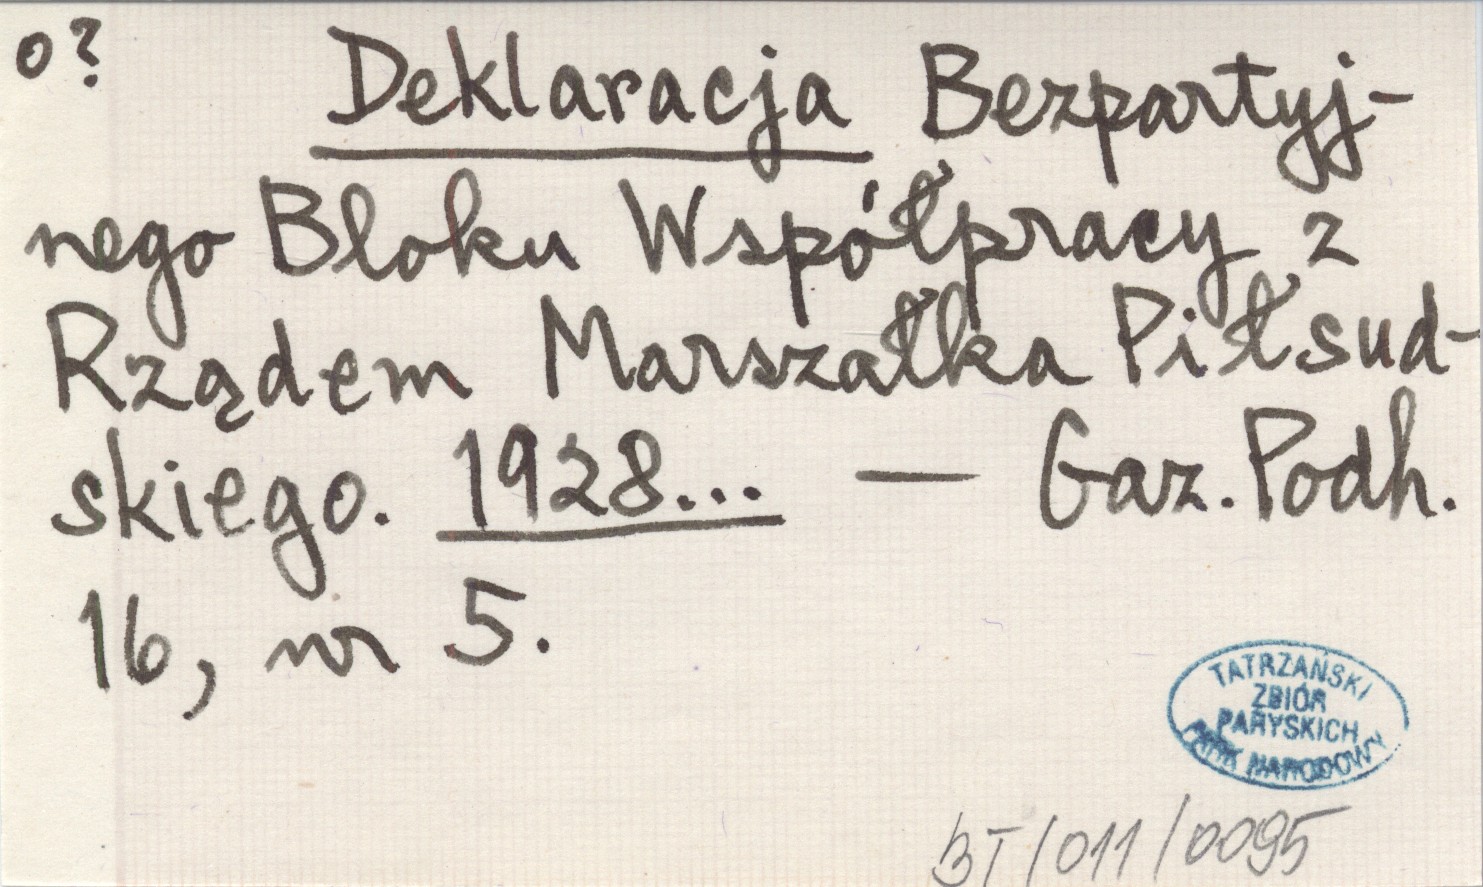 o?
Deklaracja Bezpartyj-
nego Bloku Współpracy z
Rządem Marszałka Piłsud-
skiego. 1928... — Gaz. Podh.
16, nr 5.
TATRZAŃSKI
ZBIÓR
PARYSKICH
PARK NARODOWY
BT/011/0095